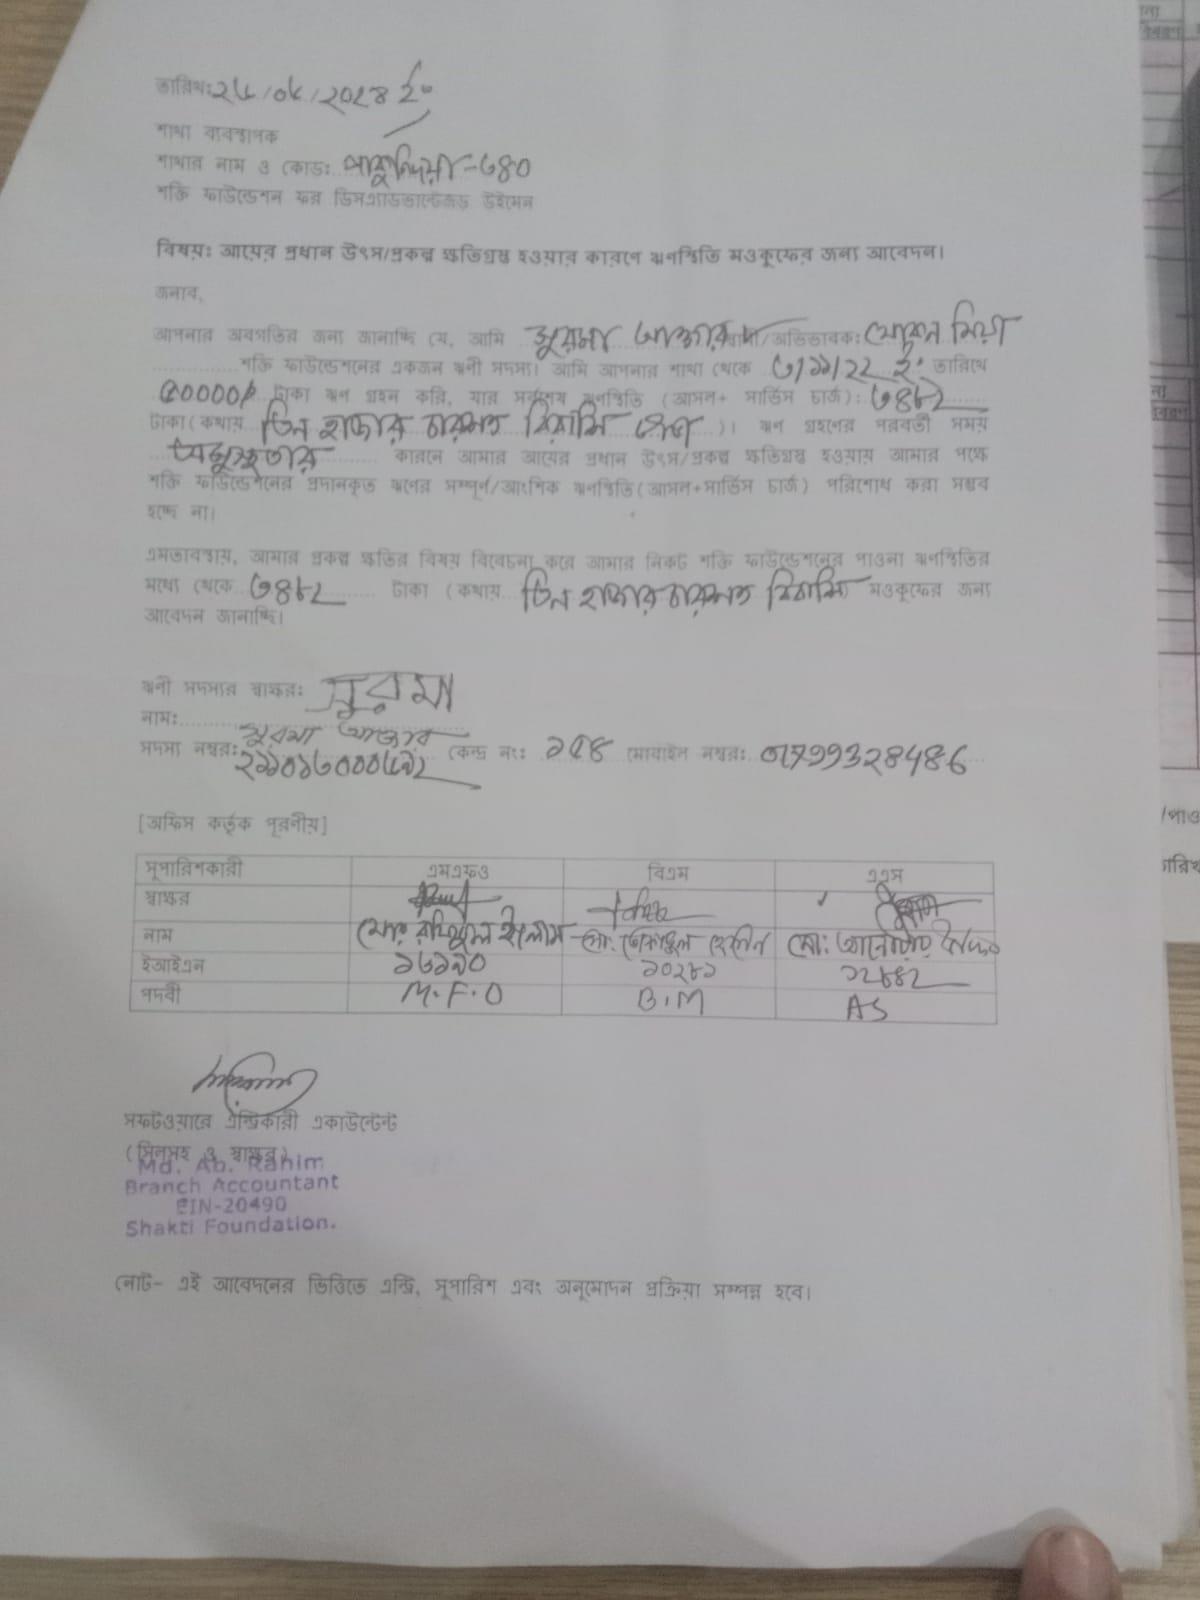 তারিখ: ২৮/০৮/২০২৪ ইং
শাখা ব্যবস্থাপক
শাখার নাম ও কোড: পাকুন্দিয়া-৩৪০
শক্তি ফাউন্ডেশন ফর ডিসএ্যাডভান্টেজড উইমেন
বিষয়: আয়ের প্রধান উৎস/প্রকল্প ক্ষতিগ্রস্ত হওয়ার কারণে ঋণস্থিতি মওকুফের জন্য আবেদন।
জনাব,
আপনার অবগতির জন্য জানাচ্ছি যে, আমি সুরমা আক্তার স্বামী/অভিভাবক: খোকন মিয়া
শক্তি ফাউন্ডেশনের একজন ঋণী সদস্য। আমি আপনার শাখা থেকে ৩/১১/২২ ইং তারিখে
৫০০০০/ টাকা ঋণ গ্রহন করি, যার সর্বশেষ ঋণস্থিতি (আসল+ সার্ভিস চার্জ): ৩৪৮২
টাকা (কথায় তিন হাজার চারশত বিরাশি )। ঋণ গ্রহণের পরবর্তী সময়
অসুস্থতার কারনে আমার আয়ের প্রধান উৎস/প্রকল্প ক্ষতিগ্রস্ত হওয়ায় আমার পক্ষে
শক্তি ফাউন্ডেশনের প্রদানকৃত ঋণের সম্পূর্ণ/আংশিক ঋণস্থিতি (আসল+সার্ভিস চার্জ) পরিশোধ করা সম্ভব
হচ্ছে না।
এমতাবস্থায়, আমার প্রকল্প ক্ষতির বিষয় বিবেচনা করে আমার নিকট শক্তি ফাউন্ডেশনের পাওনা ঋণস্থিতির
মধ্যে থেকে ৩৪৮২ টাকা (কথায় তিন হাজার চারশত বিরাশি মওকুফের জন্য
আবেদন জানাচ্ছি।
ঋণী সদস্যর স্বাক্ষর: সুরমা
নাম: সুরমা আক্তার
সদস্য নম্বর: কেন্দ্র নং: ১৫৪ মোবাইল নম্বর: 01799328486
[অফিস কর্তৃক পূরণীয়]
সুপারিশকারী এমএফও বিএম এএস
স্বাক্ষর
নাম মোঃ রফিকুল ইসলাম মোঃ মোঃ আনোয়ার
ইআইএন ১৬১৯০ ১০২৮১ ১২৪৪২
পদবী M.F.O B.M AS
সফটওয়ারে এন্ট্রিকারী একাউন্টেন্ট
(সিলসহ ও স্বাক্ষর)
Md. Ab. Rahim
Branch Accountant
EIN-20490
Shakti Foundation.
নোট- এই আবেদনের ভিত্তিতে এন্ট্রি, সুপারিশ এবং অনুমোদন প্রক্রিয়া সম্পন্ন হবে।